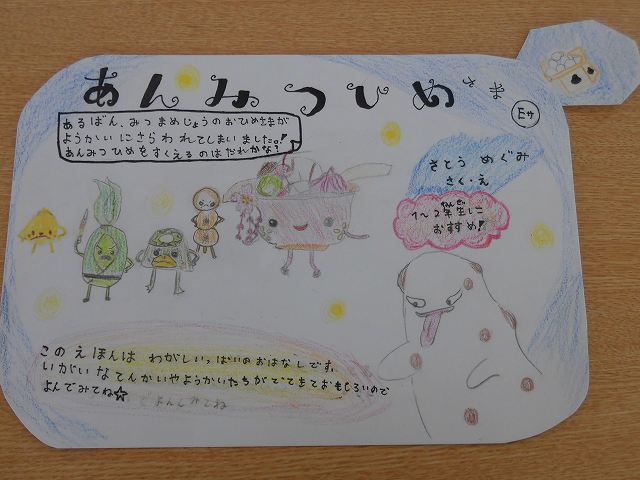 あんみつひめさま
Eサ
あるばん、みつまめじょうのおひめさまが
ようかいにさらわれてしまいました。!
あんみつひめをすくえるのはだれかな?
さとう めぐみ
さく・え
1~2年生に
おすすめ!
このえほんは わがしいっぱいのおはなしです。
いがいなてんかいやようかいたちがでてきておもしろいので
よんでみてね☆